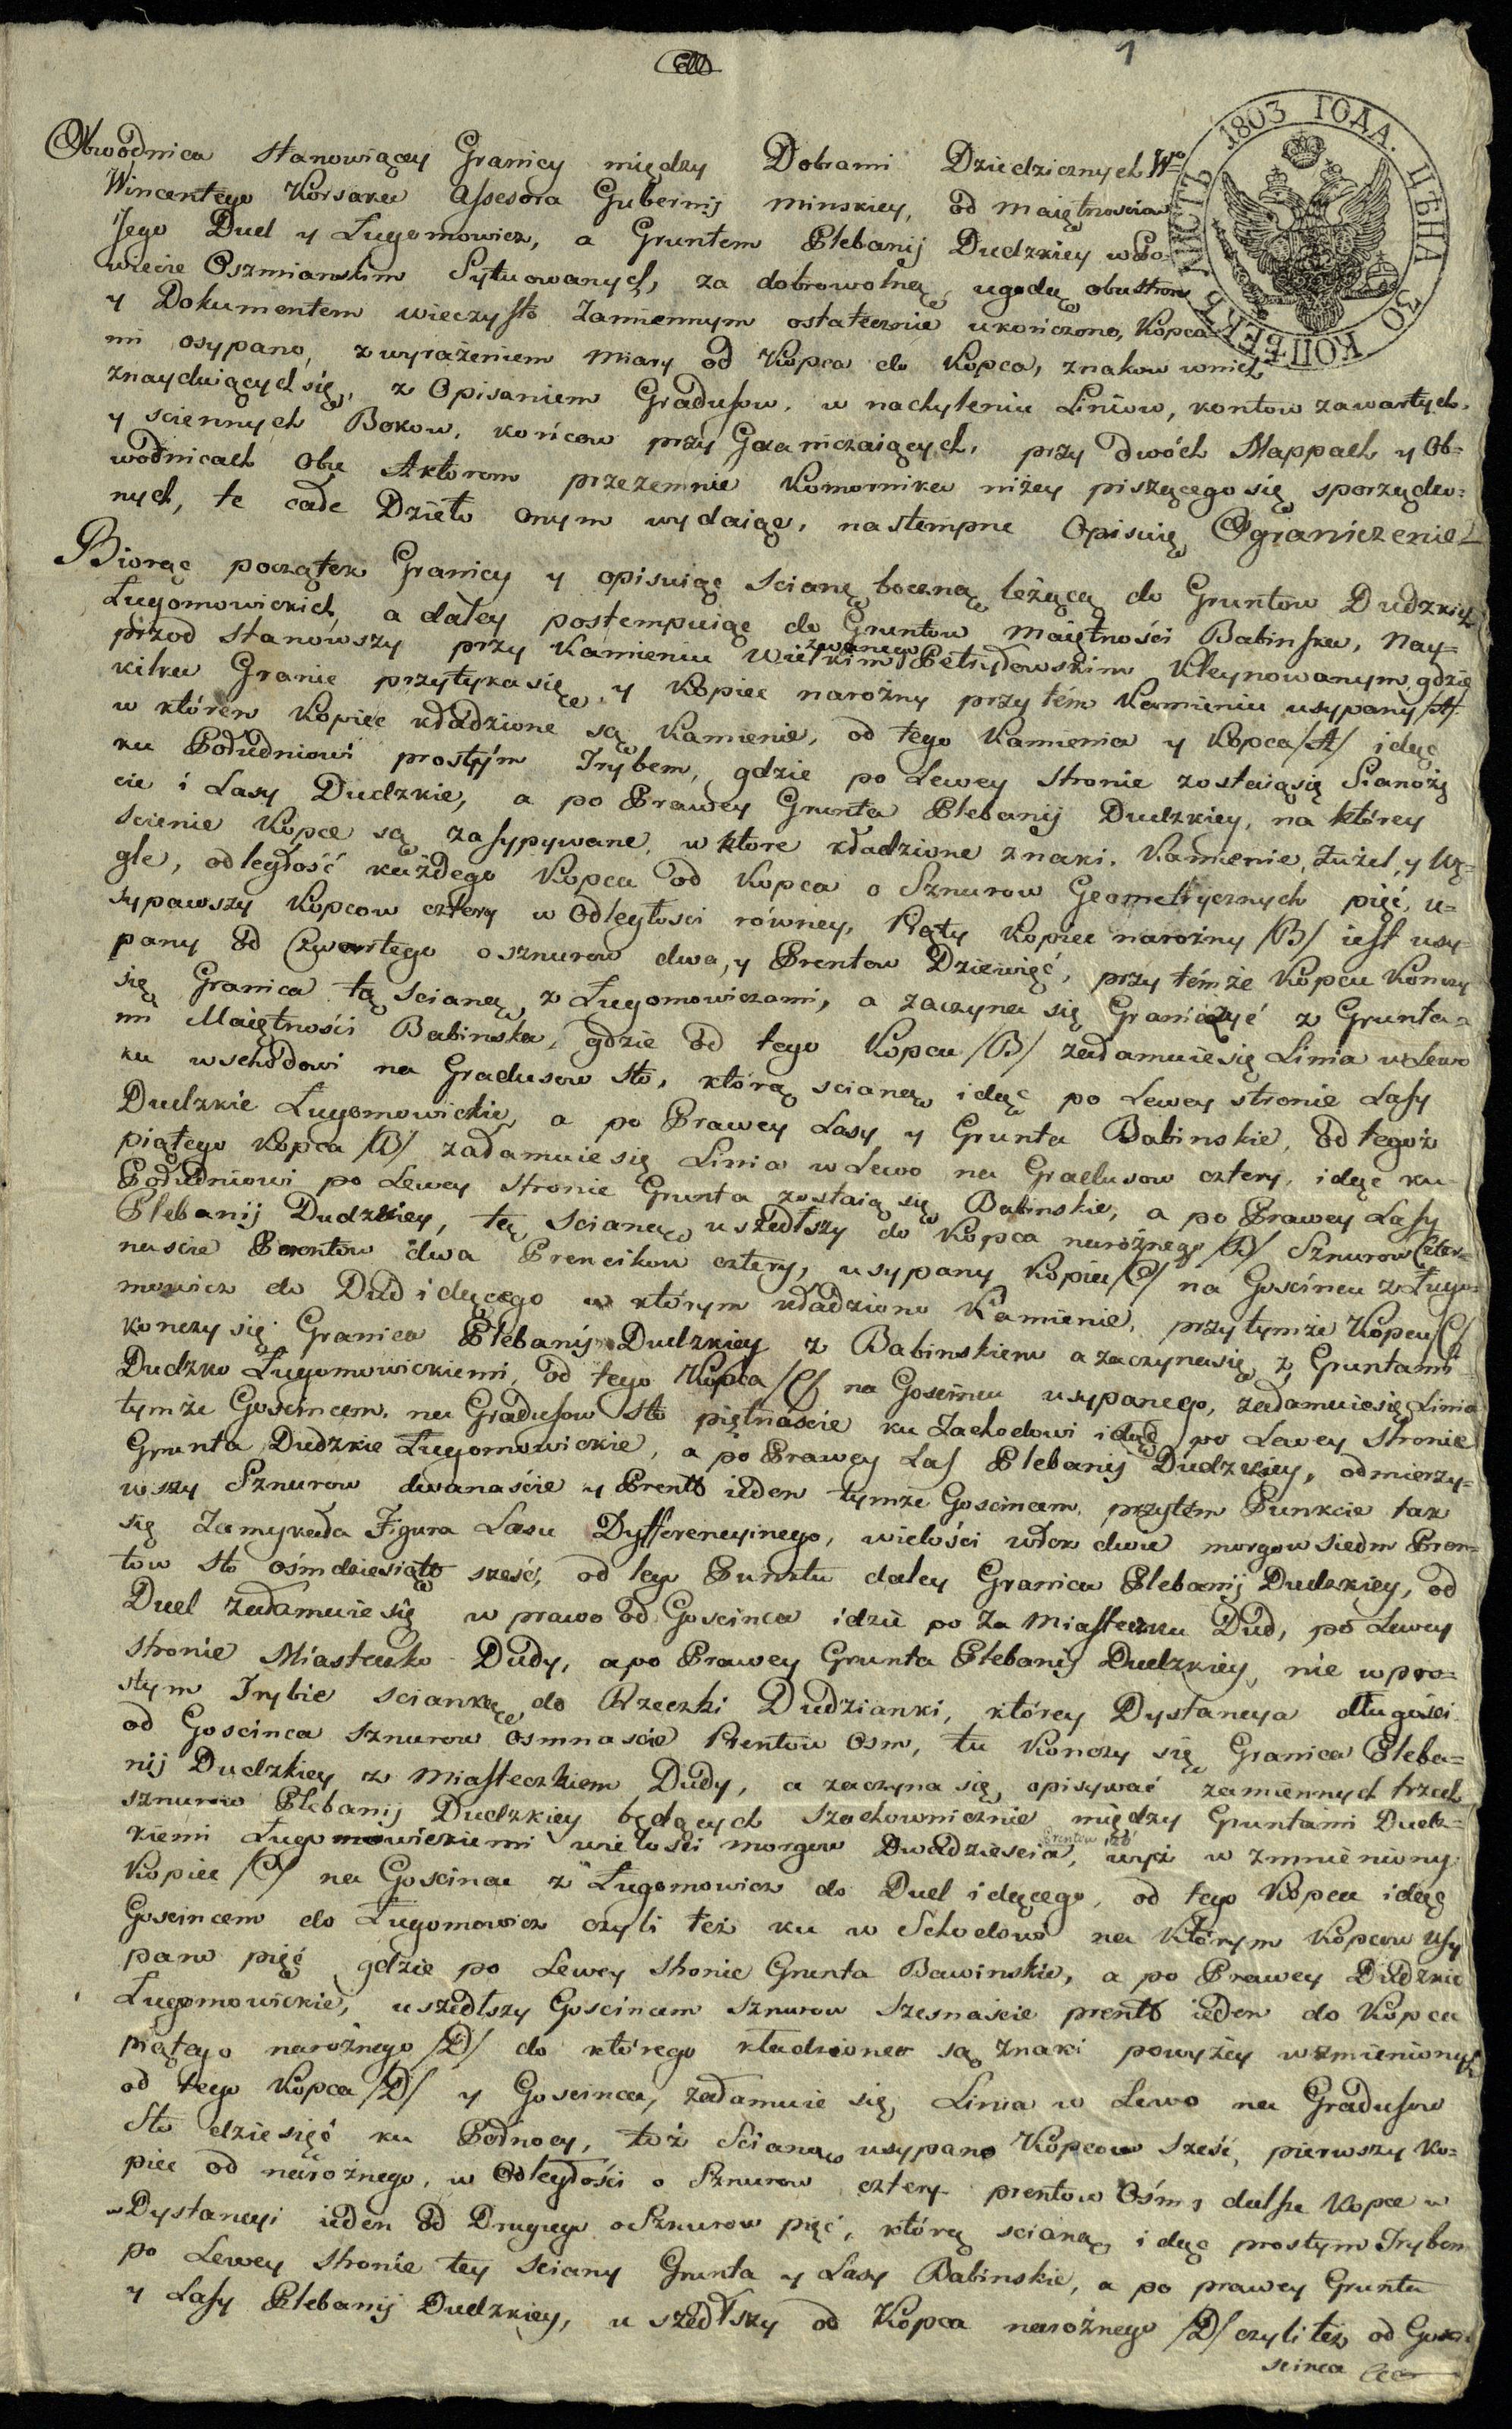 1
1803 ГОДА. ЦѢНА 30 КОПѢЕКЪ ЛИСТЪ
Obwodnica stanowiącey Granicy między Dobrami Dziedzicznych Wo
Wincentego Korsaka Assesora Gubernij Minskiey, od maiętnościow
Jego Dud y Ługomowicz, a Gruntem Plebanij Dudzkiey w Po-
wiecie Oszmianskim Sytuowanych, za dobrowolną ugodą obustron
y Dokumentem wieczysto Zamiennym ostatecznie ukończono, Kopca-
mi osypano, z wyrażeniem miary od Kopca do Kopca, znakow wnich
znayduiącychsię, z Opisaniem Gradusow, w nachyleniu Liniow, kontow zawartych,
y sciennych Bokow, końcow przy Graniczaiących, przy dwóch Mappach y Ob=
wodnicach Obu Aktorom przezemnie Komornika niżey piszącegosię sporządzo=
nych, te całe Dzieło onym wydaiąc, nastempne Opisuię Ograniczenie
Biorąc początek Granicy y opisuiąc Scianę boczną leżącą do Gruntow Dudzkich
Ługomowickich, a daley postempuiąc do Gruntow Maiętności Babinska, Nay=
przod stanowszy przy Kamieniu Wielkim zwanego Petrydowskim Kleynowanym, gdzie
kilku Granic przytykasię, y Kopiec narożny przy tém Kamieniu usypany /A/
w któren Kopiec kładzione są Kamienie, od tego Kamienia y Kopca /A/ idąc
ku Południowi prostym Trybem, gdzie po Lewey stronie zostaiąsię Sianożę
cie i Lasy Dudzkie, a po Prawey Grunta Plebanij Dudzkiey, na którey
Scienie Kopce są zasypywane, w ktore kładzione znaki, Kamienie, Żużel, y Wę=
gle, odległość każdego Kopca od Kopca o Sznurow Geometrycznych pięć, u=
sypawszy Kopcow cztery w Odległosci równey, Piąty Kopiec narożny /B/ iest usy=
pany od Czwartego o sznurow dwa, y Prentow Dziewięć, przy témże Kopcu Konczy
się Granica tą scianą z Ługomowiczami, a zaczyna się Graniczyć z Grunta=
mi Maiętności Babinska, gdzie od tego Kopca /B/ załamuiesię Linia w Lewo
ku wschodowi na Gradusow sto, którą scianą idąc po Lewey stronie Lasy
Dudzkie Ługomowickie, a po Prawey Lasy y Grunta Babinskie, od tegoż
piątego Kopca /B/ załamuiesię Linia w Lewo na Gradusow cztery, idąc ku
Południowi po Lewey stronie Grunta zostaią się Babinskie, a po Prawey Lasy
Plebanij Dudzkiey, tą Scianą uszedłszy do Kopca narożnego /B/ Sznurow Czter=
nascie Prentow dwa Prencikow cztery, usypany Kopiec /C/ na Goscincu z Ługo=
mowicz do Dud idącego w którym kładziono Kamienie, przytymże Kopcu /C/
konczy się Granica Plebanij Dudzkiey z Babinskiem a zaczynasię z Gruntami
Dudzko Ługomowickiemi, od tego Kopca /C/ na Goscincu usypanego, załamuiesię Linia
tymże Goscincem, na Gradusow sto piętnascie ku Zachodowi idąc po Lewey stronie
Grunta Dudzkie Ługomowickie, a po Prawey Las Plebanij Dudzkiey, odmierzy=
wszy Sznurow dwanaście y Prent ieden tymże Goscincem, przytém Punkcie tak
się Zamykała Figura Lasu Dyfferencyinego, wielości włok dwie morgow siedm Pren=
tow sto ośmdziesiąt sześć, od tego Punktu daley Granica Plebanij Dudzkiey, od
Dud załamuie się w prawo od Goscinca idzie po za Miasteczku Dud, po Lewey
stronie Miasteczko Dudy, a po Prawey Grunta Plebanij Dudzkiey, nie w pro=
stym Trybie scianką do Rzeczki Dudzianki, którey Dystancya długości
od Goscinca sznurow osmnascie Prentow osm, tu Konczy się Granica Pleba=
nij Dudzkiey z Miasteczkiem Dudy, a zaczyna się opisywać zamiennych trzech
sznurow Plebanij Dudzkiey będących szachownicznie między Gruntami Dudz=
kiemi Ługomowickiemi wielości morgow Dwadziescia, wyż w zmnieniony
Kopiec /C/ na Goscincu z Ługomowicz do Dud idącego, od tego Kopca idąc
Goscincem do Ługomowicz czyli też ku w Schodowi na Którym Kopcow usy
pano pięć gdzie po Lewey stronie Grunta Bawinskie, a po Prawey Dudzkie
Ługomowickie, uszedłszy Goscincem sznurow szesnascie prent ieden do Kopca
piątego narożnego /D/ do którego kładzione są znaki powyżey wzmienionych
od tego Kopca /D/ y Goscinca, załamuie się Linia w Lewo na Gradusow
Sto dziesięć ku Połnocy, toż Scianą usypano Kopcow sześć, pierwszy Ko=
piec od narożnego, w Odległości o Sznurow cztery prentow Ośm, dalsze Kopce w
Dystancyi ieden od Drugiego o Sznurow pięć, którą scianą idąc prostym Trybem
po Lewey stronie tey Sciany Grunta y Lasy Babinskie, a po prawey Grunta
y Lasy Plebanij Dudzkiey, uszedłszy od Kopca narożnego /D/ czyli też od Gos=
scinca